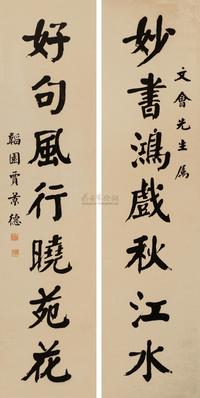 文會先生属
妙書鴻戲秋江水
好句風行曉苑花
韜園賈景德